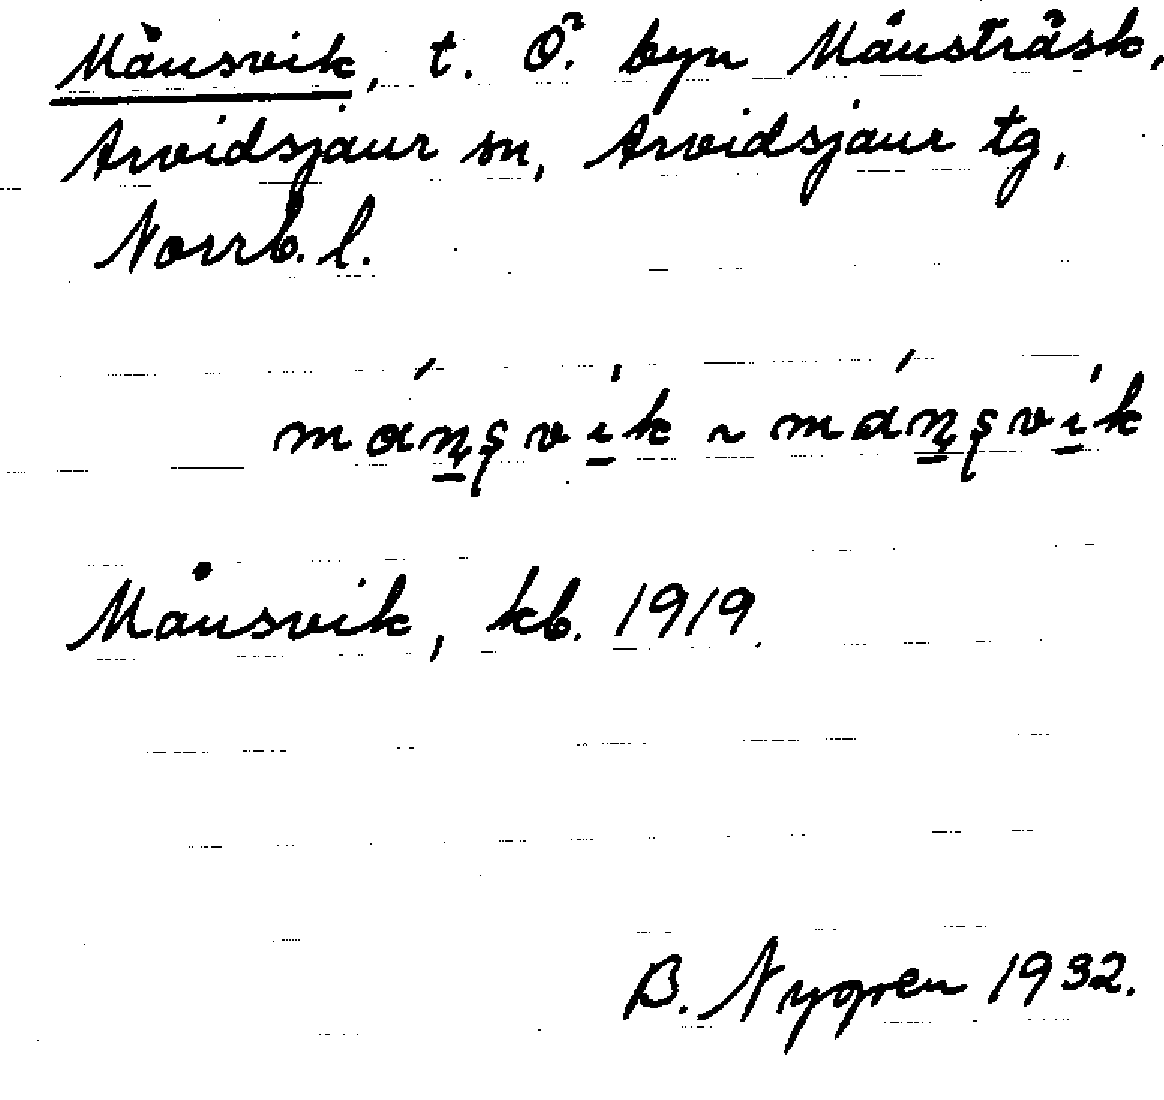 Månsvik, t. Ö. byn Månsträsk,
Arvidsjaur sn, Arvidsjaur tg,
Norrb. l.
Månsvik, kb. 1919.
B. Nygren 1932.